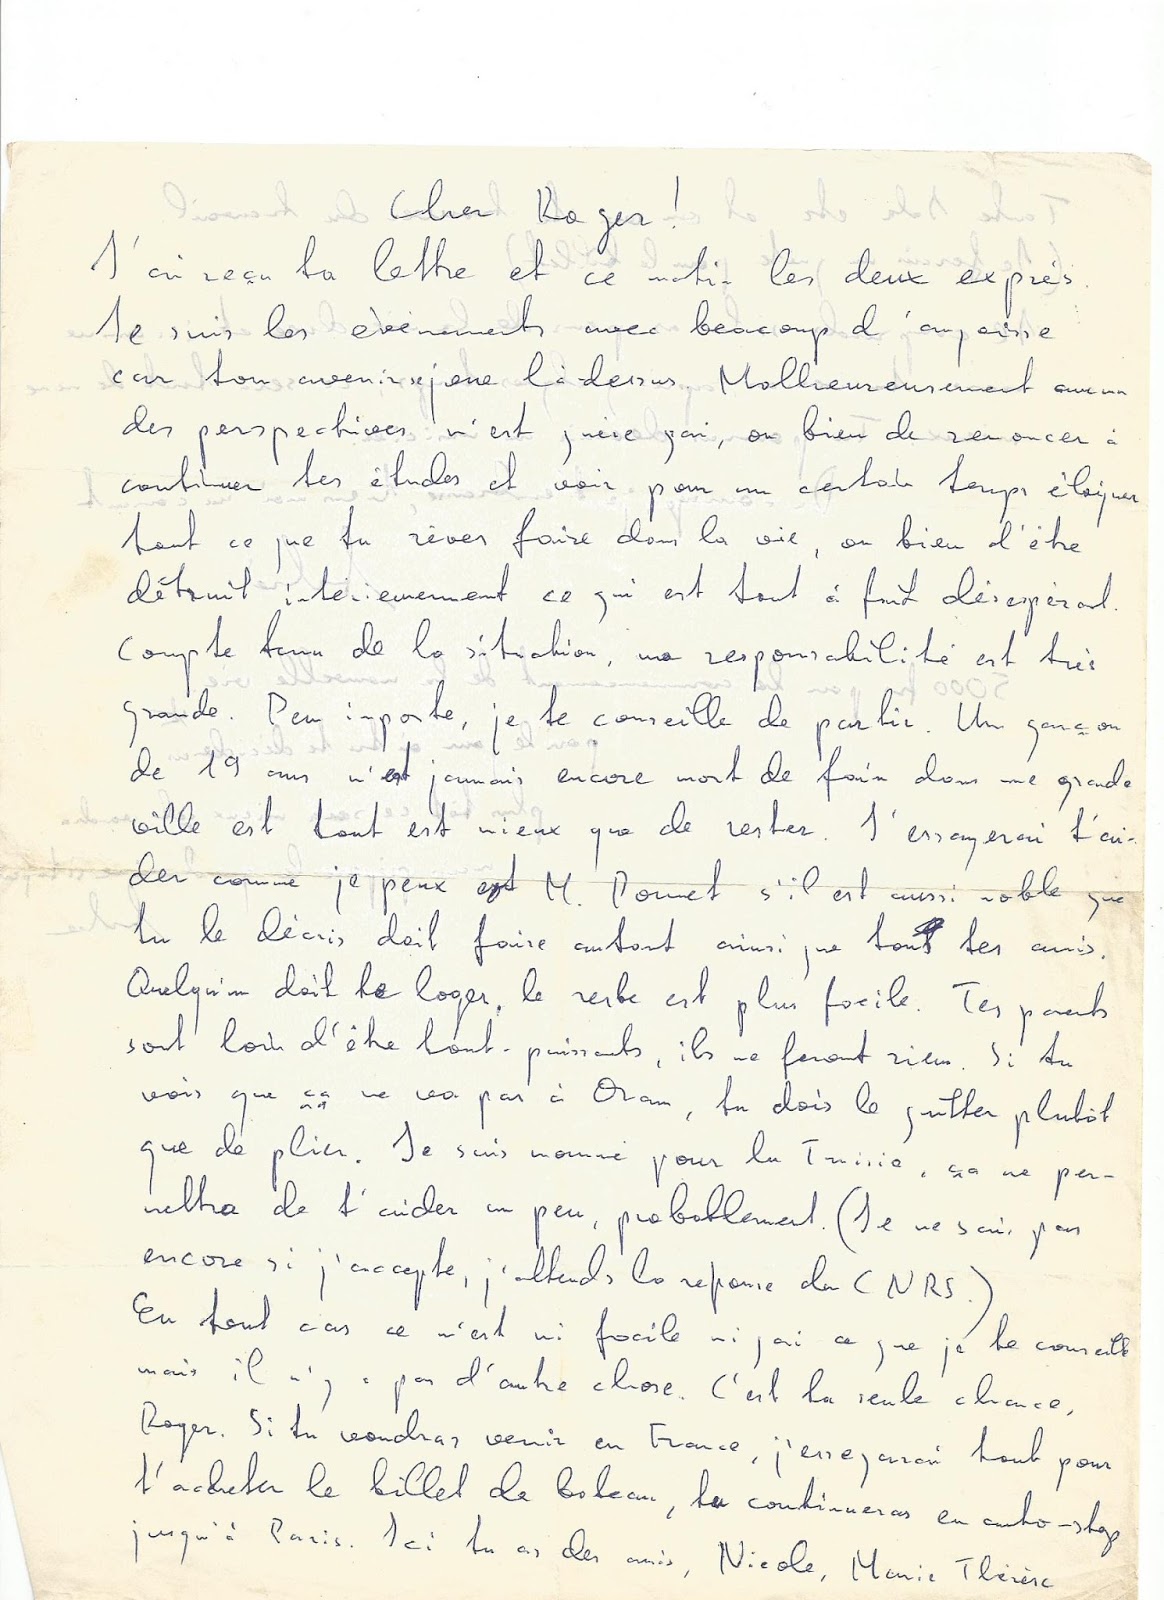 Cher Roger!
J'ai reçu ta lettre et ce matin les deux exprès.
Je suis les évènements avec beacoup d'angoisse
car ton avenir se joue là-dessus. Malheureusement aucun
des perspectives n'est guère gai, ou bien de renoncer à
continuer tes études et voir pour un certain temps éloigner
tout ce que tu rêves faire dans la vie, ou bien d'être
détruit intérieurement ce qui est tout à fait désespérant.
Compte tenu de la situation, ma responsabilité est très
grande. Peu importe, je te conseille de partir. Un garçon
de 19 ans n'est jamais encore mort de faim dans une grande
ville est tout est mieux que de rester. J'essayerai t'ai-
der comme je peux et M. s'il est aussi noble que
tu le décris doit faire autant ainsi que tous tes amis.
Quelqu'un doit te loger, le reste est plus facile. Tes parents
sont loin d'être tout-puissants, ils ne feront rien. Si tu
vois que ça ne va pas à Oran, tu dois le quitter plutôt
que de plier. Je suis nommé pour la Tunisie, ça me per-
mettra de t'aider un peu, probablement. (Je ne sais pas
encore si j'accepte, j'attends la reponse du CNRS.)
En tout cas ce n'est ni facile ni gai ce que je te conseille
mais il n'y a pas d'autre chose. C'est ta seule chance,
Roger. Si tu voudras venir en France, j'essayerai tout pour
t'acheter le billet de bateau, tu continueras en auto-stop
jusqu'à Paris. Ici tu as des amis, Nicole, Marie Thérèse